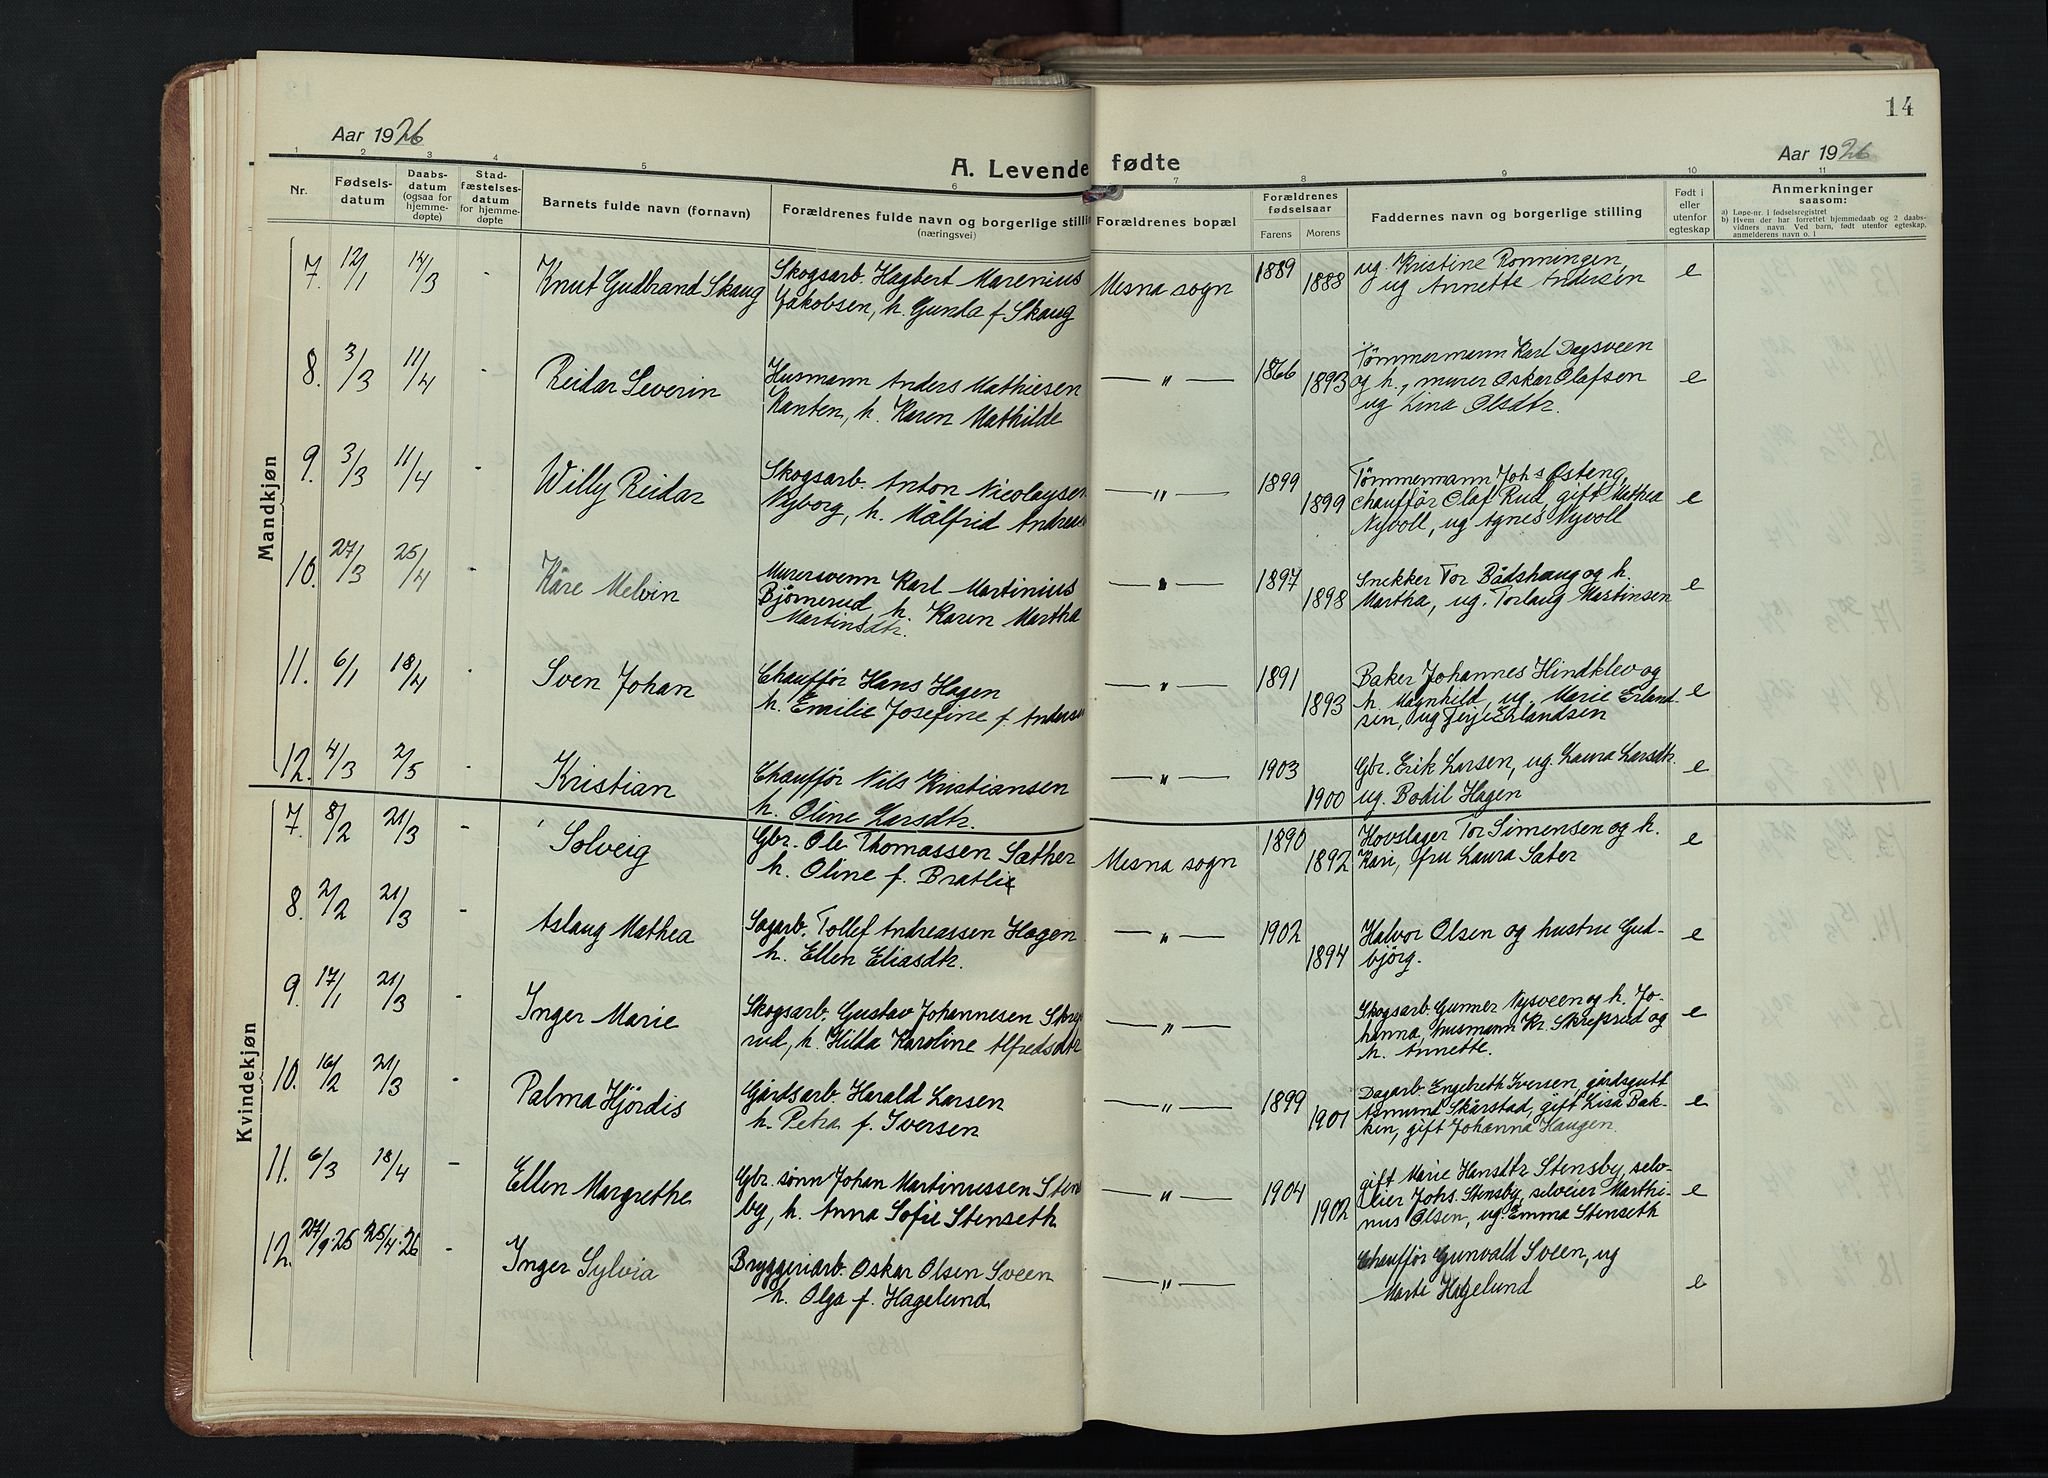 14
Aar 1926
A. Levende fødte
Aar 1926
1 2 3 4 5 6 7 8 9 10 11
Nr.
Fødsels-
datum
Daabs-
datum
(ogsaa for
hjemme-
døpte)
Stad-
fæstelses-
datum
for hjemme-
døpte
Barnets fulde navn (fornavn)
Forældrenes fulde navn og borgerlige stilling
(næringsvei)
Forældrenes bopæl
Forældrenes
fødselsaar
Farens Morens
Faddernes navn og borgerlige stilling
Født i
eller
utenfor
egteskap
Anmerkninger
saasom:
a) Løpe-nr. i fødselsregistret
b) Hvem der har forrettet hjemmedaab og 2 daabs-
vidners navn. Ved barn, født utenfor egteskap,
anmelderens navn o. l
Mandkjøn
7. 12/1 14/3 - Knut Gudbrand Skaug
Skogsarb. Hagbert Marenius
Jakobsen, h. Gunda f Skaug
Mesna sogn 1889 1888
ug. Kristine Rønningen,
ug Annette Andersen e
8. 3/3 11/4 - Reidar Severin
Husmann Anders Mathiesen
Kanten, h. Karen Mathilde
— " — 1866 1893
Tømmermann Karl Dagsveen
og h., murer Oskar Olafsen
ug Lina Olsdtr. e
9. 3/3 11/4 - Willy Reidar
Skogsarb. Anton Nicolaysen
Nyborg, h. Målfrid Andreas
— " — 1899 1899
Tømmermann Johs Østeng,
chauffør Olaf Rud, gift Mathea
Nyvoll, ug Agnes Nyvoll e
10. 27/3 25/4 - Kåre Melvin
Murersvenn Karl Martinius
Bjørnerud, h. Karen Martha
Martinsdtr.
— " — 1897 1898
Snekker Tor Bådshaug og h.
Martha, ug. Torlaug Martinsen e
11. 6/1 18/4 - Sven Johan
Chauffør Hans Hagen
h. Emilie Josefine f. Anders
— " — 1891 1893
Baker Johannes Hindklev og
h. Magnhild, ug. Marie Erland-
sen, ug Terje Erlandsen e
12. 4/3 2/5 - Kristian
Chauffør Nils Kristiansen
h. Oline Larsdtr.
— " — 1903 1900
Gbr. Erik Larsen, ug. Laura Larsdtr.
ug. Bodil Hagen e
Kvindekjøn
7. 8/2 21/3 - Solveig
Gbr. Ole Thomassen Sæther
h. Oline f. Bratlie
Mesna sogn 1890 1892
Hovslager Tor Simensen og h.
Kari, fru Laura Sater e
8. 2/2 21/3 - Aslaug Mathea
Sagarb. Tollef Andreassen Hagen
h. Ellen Eliasdtr.
— " — 1902 1894
Halvor Olsen og hustru Gud-
bjørg. e
9. 17/1 21/3 - Inger Marie
Skogsarb. Gustav Johannesen Skrep
rud, h. Hilda Karoline Alfredsdtr
— " —
Skogsarb. Gunner Nysveen og h. Jo-
hanna, husmann Kr. Skrepsrud og
h. Annette. e
10. 16/2 21/3 - Palma Hjørdis
Gårdsarb. Harald Larsen
h. Petra f. Iversen
— " — 1899 1901
Dagarb. Engebreth Iversen, gårdsgutt
Asmund Skårstad, gift Lisa Bak-
ken, gift Johanna Haugen. e
11. 6/3 18/4 - Ellen Margrethe
Gbr. sønn Johan Martinussen Sten
by, h. Anna Sofie Stenseth
— " — 1904 1902
gift Marie Hansdtr Stensby, selv-
eier Johs. Stensby, selveier Marthi-
nus Olsen, ug. Emma Stenseth e
12. 27/9-25 25/4-26 - Inger Sylvia
Bryggeriarb. Oskar Olsen Sveen
h. Olga f. Hagelund
— " —
Chauffør Gunvald Sveen, ug
Marte Hagelund e